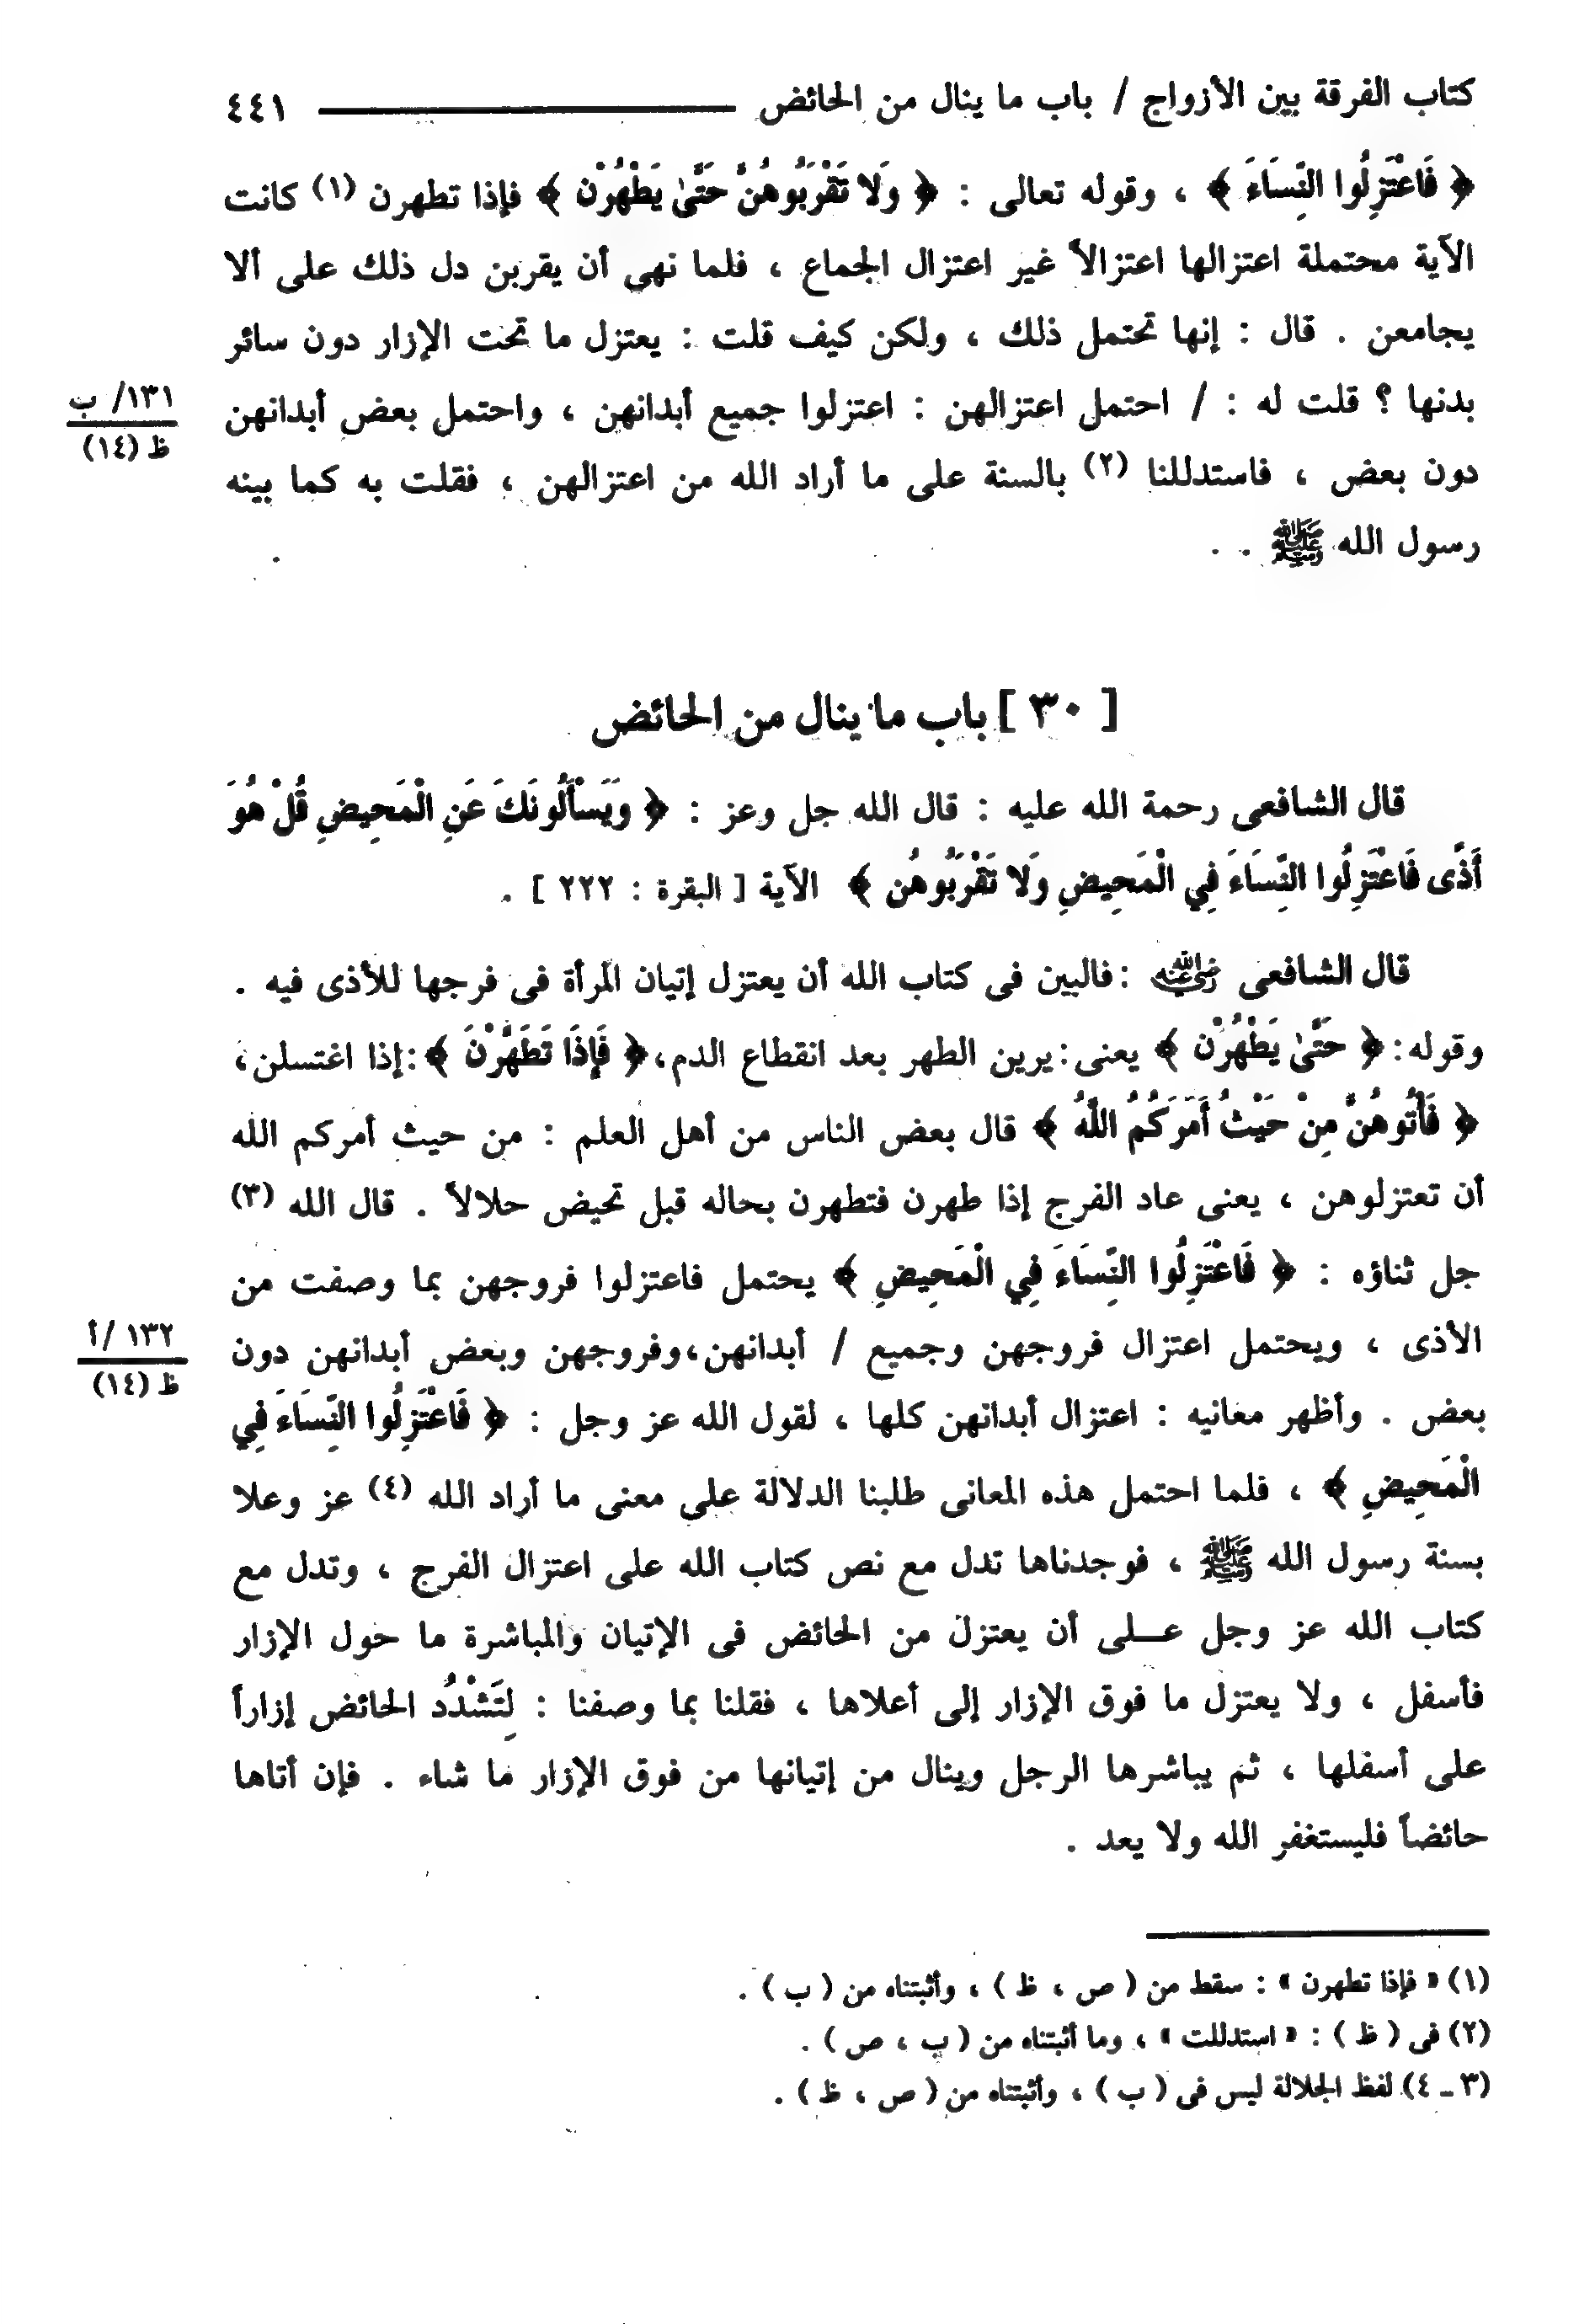 كتاب الفرقة بين الأزواج / باب ما ينال من الحائض ٤٤١
﴿ فَاعْتَزِلُوا النِّسَاءَ ﴾ ، وقوله تعالى : ﴿ وَلا تَقْرَبُوهُنَّ حَتَّىٰ يَطْهُرْن ﴾ فإذا تطهرن (١) كانت
الآية محتملة اعتزالها اعتزالاً غير اعتزال الجماع ، فلما نهى أن يقربن دل ذلك على ألا
يجامعن . قال : إنها تحتمل ذلك ، ولكن كيف قلت : يعتزل ما تحت الإزار دون سائر
بدنها ؟ قلت له : / احتمل اعتزالهن : اعتزلوا جميع أبدانهن ، واحتمل بعض أبدانهن
١٣١/ ب
ظ (١٤)
دون بعض ، فاستدللنا (٢) بالسنة على ما أراد الله من اعتزالهن ، فقلت به كما بينه
رسول الله ﷺ .
[ ٣٠ ] باب ما ينال من الحائض
قال الشافعى رحمة الله عليه : قال الله جل وعز : ﴿ وَيَسْأَلُونَكَ عَنِ الْمَحِيضِ قُلْ هُوَ
أَذًى فَاعْتَزِلُوا النِّسَاءَ فِي الْمَحِيضِ وَلا تَقْرَبُوهُن ﴾ الآية [ البقرة : ٢٢٢ ] .
قال الشافعى رضي الله عنه : فالبين فى كتاب الله أن يعتزل إتيان المرأة فى فرجها للأذى فيه .
وقوله: ﴿ حَتَّىٰ يَطْهُرْن ﴾ يعنى: يرين الطهر بعد انقطاع الدم، ﴿ فَإِذَا تَطَهَّرْنَ ﴾: إذا اغتسلن،
﴿ فَأْتُوهُنَّ مِنْ حَيْثُ أَمَرَكُمُ اللَّهُ ﴾ قال بعض الناس من أهل العلم : من حيث أمركم الله
أن تعتزلوهن ، يعنى عاد الفرج إذا طهرن فتطهرن بحاله قبل تحيض حلالاً . قال الله (٣)
جل ثناؤه : ﴿ فَاعْتَزِلُوا النِّسَاءَ فِي الْمَحِيضِ ﴾ يحتمل فاعتزلوا فروجهن بما وصفت من
الأذى ، ويحتمل اعتزال فروجهن وجميع / أبدانهن، وفروجهن وبعض أبدانهن دون
١٣٢ /أ
ظ (١٤)
بعض . وأظهر معانيه : اعتزال أبدانهن كلها ، لقول الله عز وجل : ﴿ فَاعْتَزِلُوا النِّسَاءَ فِي
الْمَحِيضِ ﴾ ، فلما احتمل هذه المعانى طلبنا الدلالة على معنى ما أراد الله (٤) عز وعلا
بسنة رسول الله ﷺ ، فوجدناها تدل مع نص كتاب الله على اعتزال الفرج ، وتدل مع
كتاب الله عز وجل عـــلى أن يعتزل من الحائض فى الإتيان والمباشرة ما حول الإزار
فأسفل ، ولا يعتزل ما فوق الإزار إلى أعلاها ، فقلنا بما وصفنا : لِتَشْدُد الحائض إزاراً
على أسفلها ، ثم يباشرها الرجل وينال من إتيانها من فوق الإزار ما شاء . فإن أتاها
حائضاً فليستغفر الله ولا يعد .
(١) « فإذا تطهرن » : سقط من ( ص ، ظ ) ، وأثبتناه من ( ب ) .
(٢) فى ( ظ ) : « استدللت » ، وما أثبتناه من ( ب ، ص ) .
(٣ ـ ٤) لفظ الجلالة ليس فى ( ب ) ، وأثبتناه من ( ص ، ظ ) .